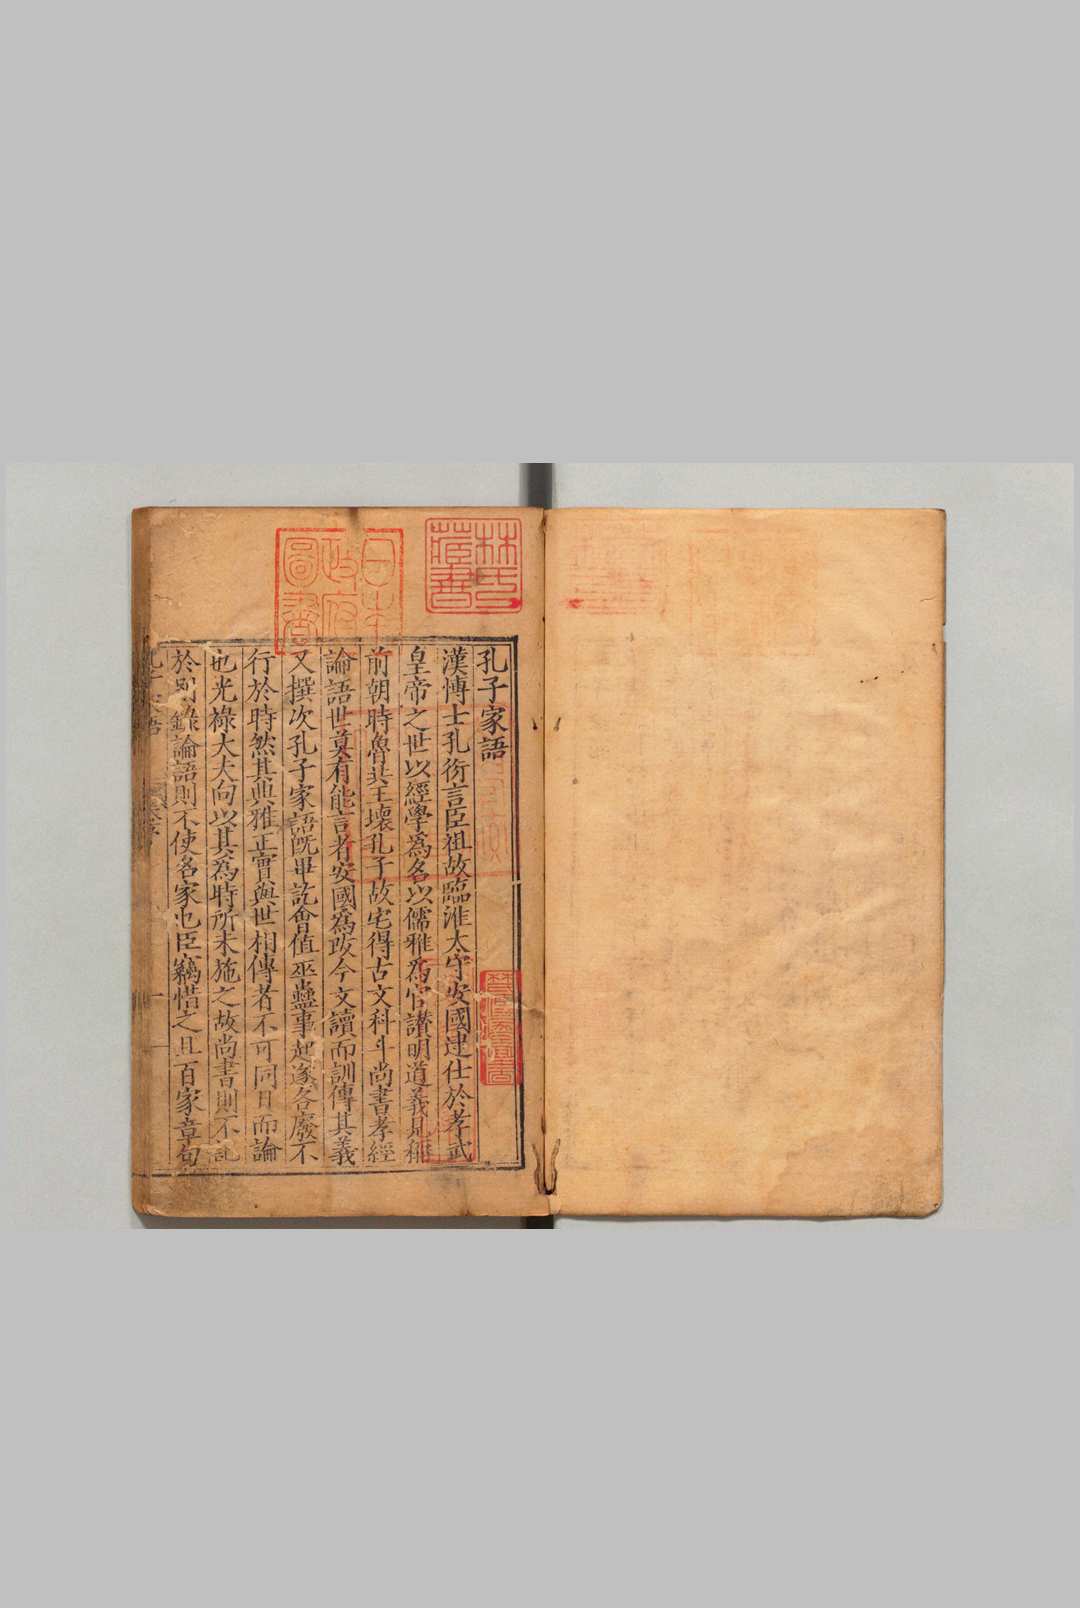 孔子家語
漢博士孔衍言臣祖故臨淮太守安國逮仕於孝武
皇帝之世以經學爲名以儒雅爲官讃明道義見稱
前朝時魯共王壞孔子故宅得古文科斗尚書孝經
論語世莫有能言者安國爲改今文讀而訓傳其義
又撰次孔子家語既畢訖會值巫蠱事起遂各廢不
行於時然其典雅正實與世相傳者不可同日而論
也光祿大夫向以其爲時所未施之故尚書則不記
於別錄論語則不使名家也臣竊惜之且百家章句
林氏藏書
日本政府圖書